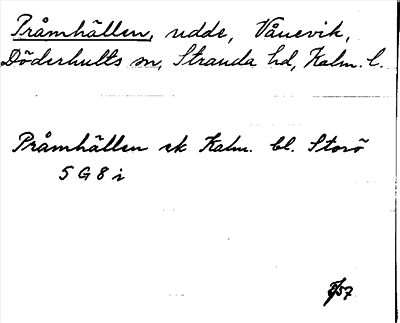 Pråmhällen, udde, Vånevik,
Döderhults sn, Stranda hd, Kalm. l.
Pråmhällen ek Kalm. bl. Storö
5 G 8 i
57